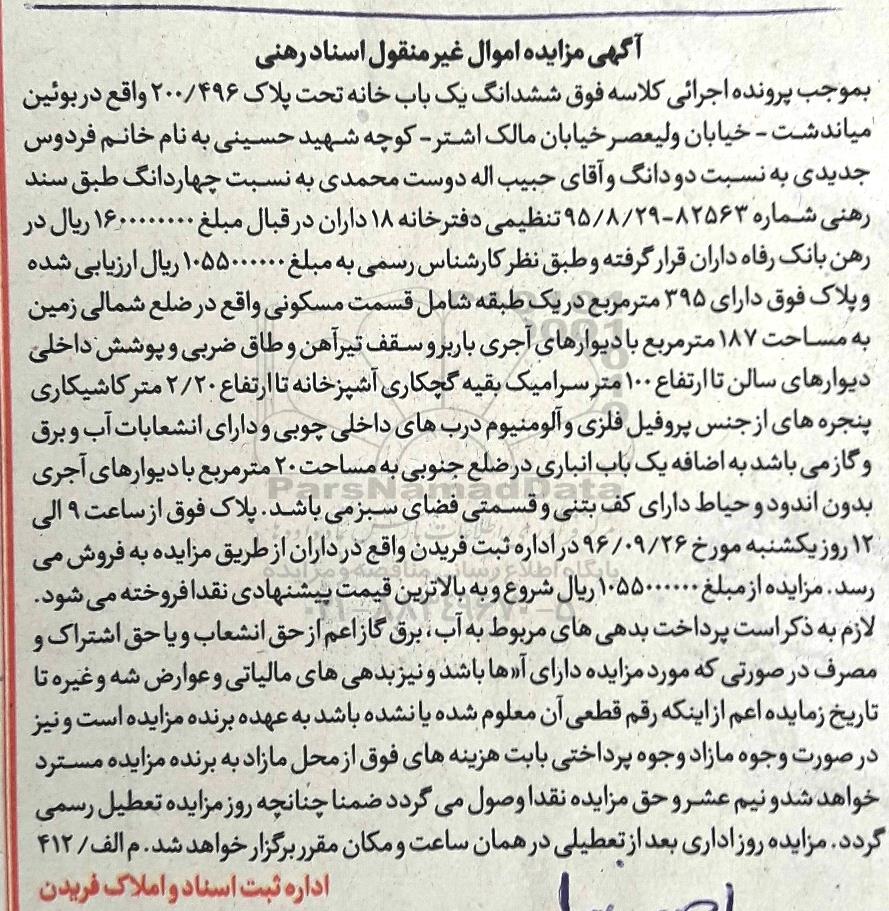 آگهی مزایده اموال غیر منقول اسناد رهنی
بموجب پرونده اجرائی کلاسه فوق ششدانگ یک باب خانه تحت پلاک ۲۰۰/۴۹۶ واقع در بوئین
میاندشت - خیابان ولیعصر خیابان مالک اشتر - کوچه شهید حسینی به نام خانم فردوس
جدیدی به نسبت دو دانگ و آقای حبیب اله دوست محمدی به نسبت چهاردانگ طبق سند
رهنی شماره ۸۲۵۶۳-۹۵/۸/۲۹ تنظیمی دفترخانه ۱۸ داران در قبال مبلغ ۱۶۰۰۰۰۰۰۰۰ ریال در
رهن بانک رفاه داران قرار گرفته و طبق نظر کارشناس رسمی به مبلغ ۱۰۵۵۰۰۰۰۰۰ ریال ارزیابی شده
و پلاک فوق دارای ۳۹۵ مترمربع در یک طبقه شامل قسمت مسکونی واقع در ضلع شمالی زمین
به مساحت ۱۸۷ مترمربع با دیوارهای آجری باربر و سقف تیرآهن و طاق ضربی و پوشش داخلی
دیوارهای سالن تا ارتفاع ۱۰۰ متر سرامیک بقیه گچکاری آشپزخانه تا ارتفاع ۲/۲۰ متر کاشیکاری
پنجره های از جنس پروفیل فلزی و آلومنیوم درب های داخلی چوبی و دارای انشعابات آب و برق
و گاز می باشد به اضافه یک باب انباری در ضلع جنوبی به مساحت ۲۰ مترمربع با دیوارهای آجری
بدون اندود و حیاط دارای کف بتنی و قسمتی فضای سبز می باشد. پلاک فوق از ساعت ۹ الی
۱۲ روز یکشنبه مورخ ۹۶/۰۹/۲۶ در اداره ثبت فریدن واقع در داران از طریق مزایده به فروش می
رسد. مزایده از مبلغ ۱۰۵۵۰۰۰۰۰۰ ریال شروع و به بالاترین قیمت پیشنهادی نقدا فروخته می شود.
لازم به ذکر است پرداخت بدهی های مربوط به آب، برق گاز اعم از حق انشعاب و یا حق اشتراک و
مصرف در صورتی که مورد مزایده دارای آ«ها باشد و نیز بدهی های مالیاتی و عوارض شه و غیره تا
تاریخ زمایده اعم از اینکه رقم قطعی آن معلوم شده یا نشده باشد به عهده برنده مزایده است و نیز
در صورت وجوه مازاد وجوه پرداختی بابت هزینه های فوق از محل مازاد به برنده مزایده مسترد
خواهد شد و نیم عشر و حق مزایده نقدا وصول می گردد ضمنا چنانچه روز مزایده تعطیل رسمی
گردد. مزایده روز اداری بعد از تعطیلی در همان ساعت و مکان مقرر برگزار خواهد شد. م الف/۴۱۲
اداره ثبت اسناد و املاک فریدن
ParsNamadData
پایگاه اطلاع رسانی مناقصه و مزایده